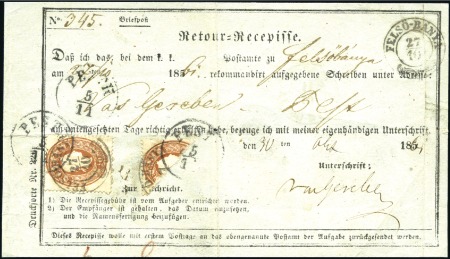 No 345. Briefpost
Retour-Recepisse.
FELSO-BANYA
27
10
Daß ich das, bei dem k. k. Postamte zu Felsőbánya
am 185 rekommandirt aufgegebene Schreiben unter Adresse:
5/11
Pest
am untengesetzten Tage richtig erhalten habe, bezeuge ich mit meiner eigenhändigen Unterschrift.
PEST
den 30 ten 185
Unterschrift:
Zur Nachricht.
1) Die Recepissegebühr ist vom Aufgeber entrichtet werden.
2) Der Empfänger ist gehalten, das Datum anzusetzen,
und die Namensfertigung beizufügen.
Dieses Recepisse wolle mit erstem Posttage an das obengenannte Postamt der Aufgabe zurückgesendet werden.